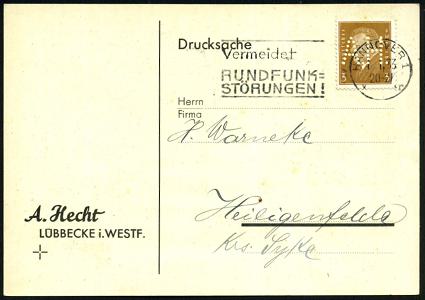 Drucksache
Vermeidet
RUNDFUNK=
STÖRUNGEN!
HANNOVER 1
3 3
Herrn
Firma
H. Warneke
Heiligenfelde
Krs. Syke
A. Hecht
LÜBBECKE i. WESTF.